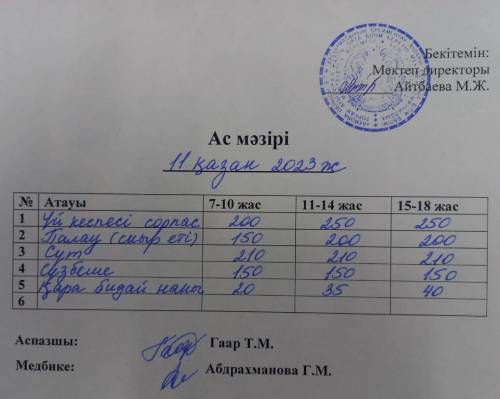 Бекітемін:
Мектеп директоры
Айтбаева М.Ж.
Ас мәзірі
11 қазан 2023 ж
№ Атауы 7-10 жас 11-14 жас 15-18 жас
1 Үй кеспесі сорпас 200 250 250
2 Палау (сиыр еті) 150 200 200
3 Сүт 210 210 210
4 Сүзбеше 150 150 150
5 Қара бидай наны 20 35 40
6
Аспазшы: Гаар Т.М.
Медбике: Абдрахманова Г.М.